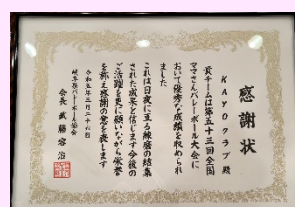 感謝状
KAYOクラブ 殿
貴チームは第五十三回全国
ママさんバレーボール大会に
おいて優秀な成績を収められ
ました
これは日夜に亘る練磨の結集
された成果と信じます今後の
ご活躍を更に願いながら栄誉
を称え感謝の意を表します
令和五年三月二十六日
岐阜県バレーボール協会
会長 武藤容治